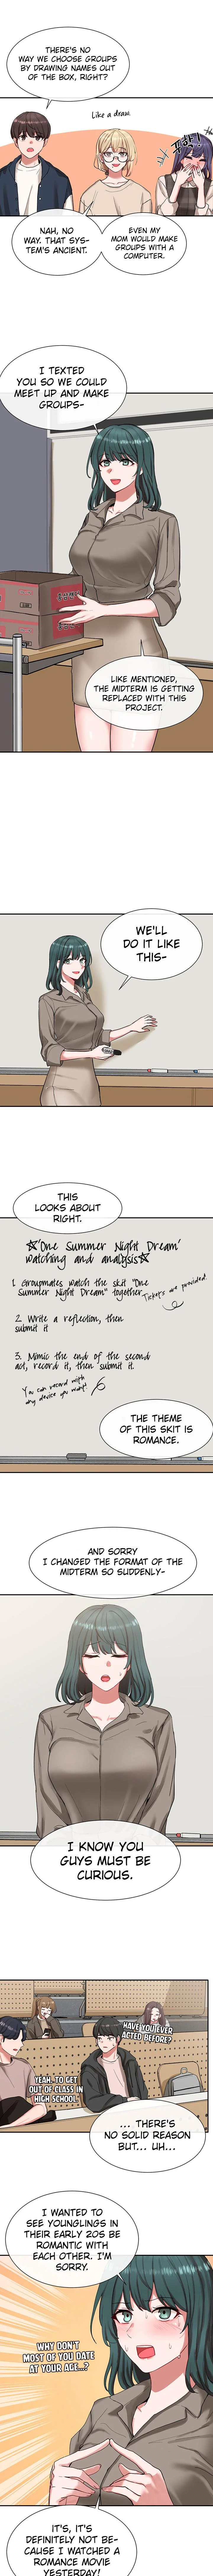 THERE'S NO
WAY WE CHOOSE GROUPS
BY DRAWING NAMES OUT
OF THE BOX, RIGHT?
Like a draw.
NAH, NO
WAY. THAT SYS-
TEM'S ANCIENT.
EVEN MY
MOM WOULD MAKE
GROUPS WITH A
COMPUTER.
I TEXTED
YOU SO WE COULD
MEET UP AND MAKE
GROUPS-
LIKE MENTIONED,
THE MIDTERM IS GETTING
REPLACED WITH THIS
PROJECT.
WE'LL
DO IT LIKE
THIS-
THIS
LOOKS ABOUT
RIGHT.
☆'One Summer Night Dream'
watching and analysis☆
1. Groupmates watch the skit "One
Summer Night Dream" together.
Tickets are provided.
2. Write a reflection, then
submit it
3. Mimic the end of the second
act, record it, then submit it.
You can record with
any device you want!
THE THEME
OF THIS SKIT IS
ROMANCE.
AND SORRY
I CHANGED THE FORMAT OF THE
MIDTERM SO SUDDENLY-
I KNOW YOU
GUYS MUST BE
CURIOUS.
HAVE YOU EVER
ACTED BEFORE?
YEAH, TO GET
OUT OF CLASS IN
HIGH SCHOOL.
... THERE'S
NO SOLID REASON
BUT... UH...
I WANTED TO
SEE YOUNGLINGS IN
THEIR EARLY 20S BE
ROMANTIC WITH
EACH OTHER. I'M
SORRY.
WHY DON'T
MOST OF YOU DATE
AT YOUR AGE...?
IT'S, IT'S
DEFINITELY NOT BE-
CAUSE I WATCHED A
ROMANCE MOVIE
YESTERDAY!